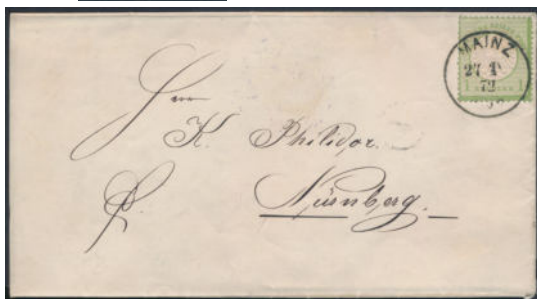 MAINZ
27 1
72
1 1
Herrn
K. Philidor.
Nürnberg.